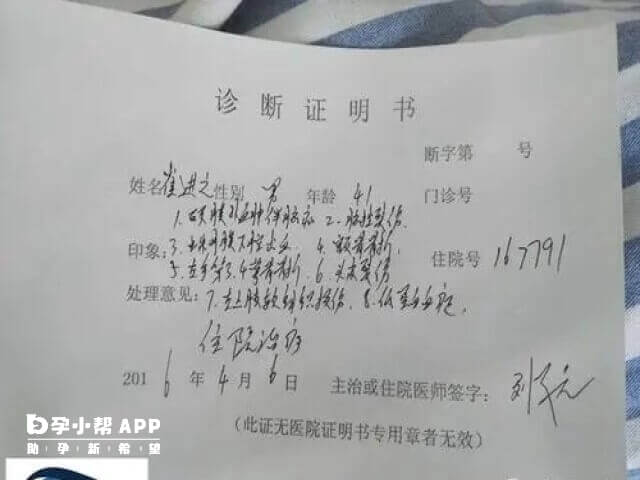 诊断证明书
断字第 号
姓名 崔进之 性别 男 年龄 41 门诊号
1. 硬膜外血肿伴脑疝 2. 脑挫裂伤
印象: 3. 蛛网膜下腔出血 4. 颅骨骨折 住院号 167791
5. 左手第3.4掌骨骨折 6. 头皮裂伤
处理意见: 7. 左上肢软组织损伤 8. 低蛋白血症
住院治疗
2016年4月6日 主治或住院医师签字:
(此证无医院证明书专用章者无效)
孕小帮APP
助孕新希望